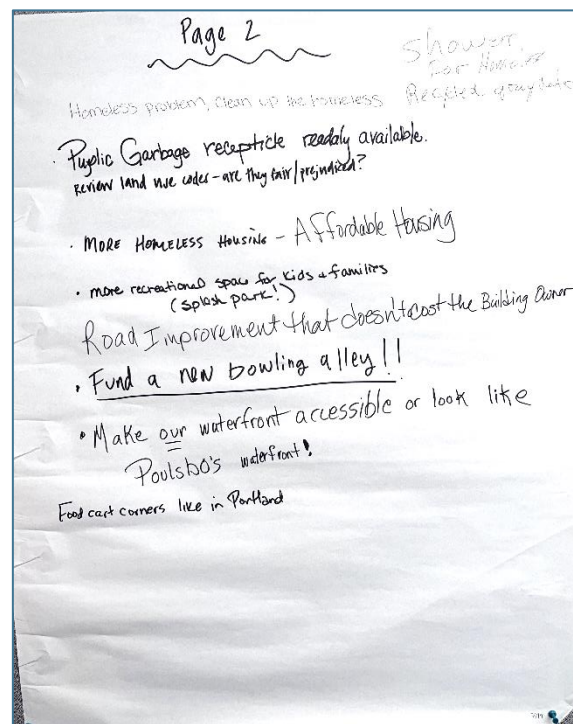 Page 2
Shower
For Homeless
Homeless problem, clean up the homeless
Recycled
• Puplic Garbage recepticle readaly available.
Review land use codes - are they fair/prejudiced?
• MORE HOMELESS HOUSING - Affordable Housing
• more recreational space for kids & families
(splash park!)
Road Improvement that doesn't cost the Building Owner
• Fund a new bowling alley!!
• Make our waterfront accessible or look like
Poulsbo's waterfront!
Food cart corners like in Portland